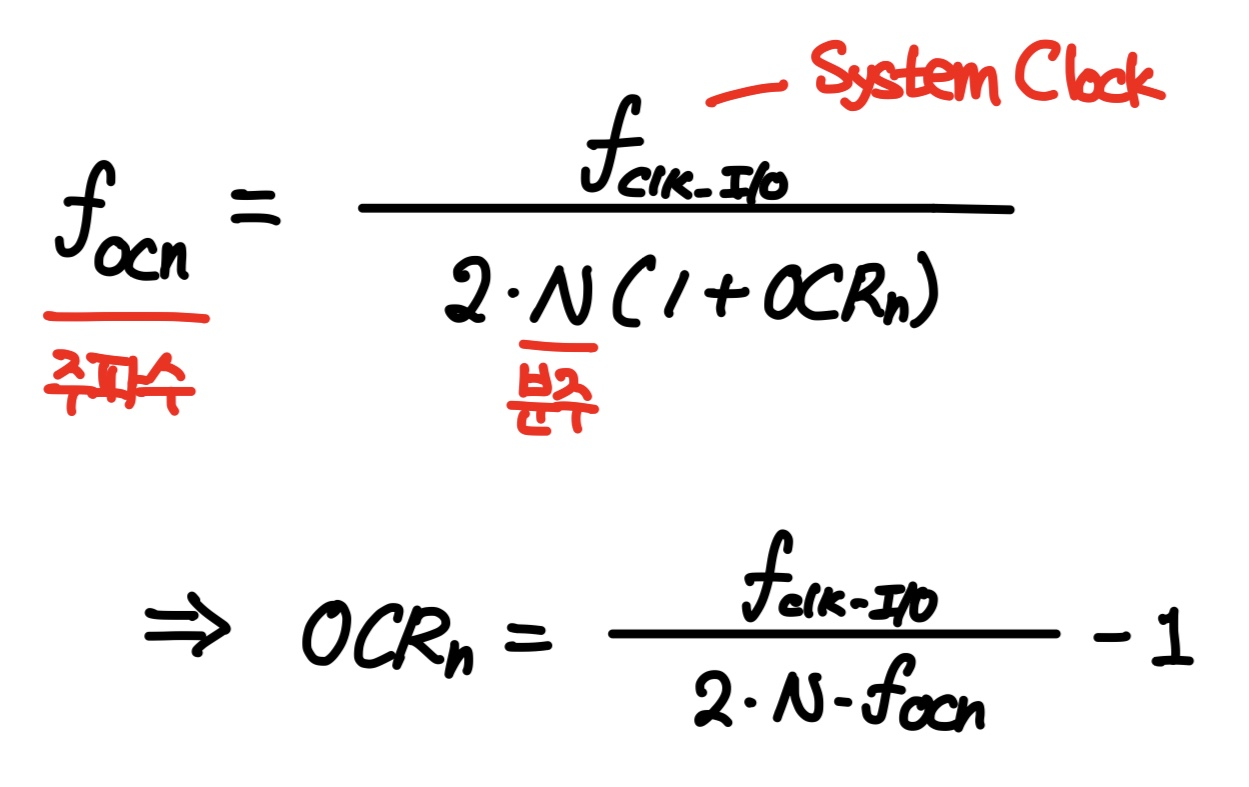 System Clock
f_ocn = f_clk-I/O / 2·N(1+OCR_n)
주파수
분주
⇒ OCR_n = f_clk-I/O / 2·N-f_ocn - 1